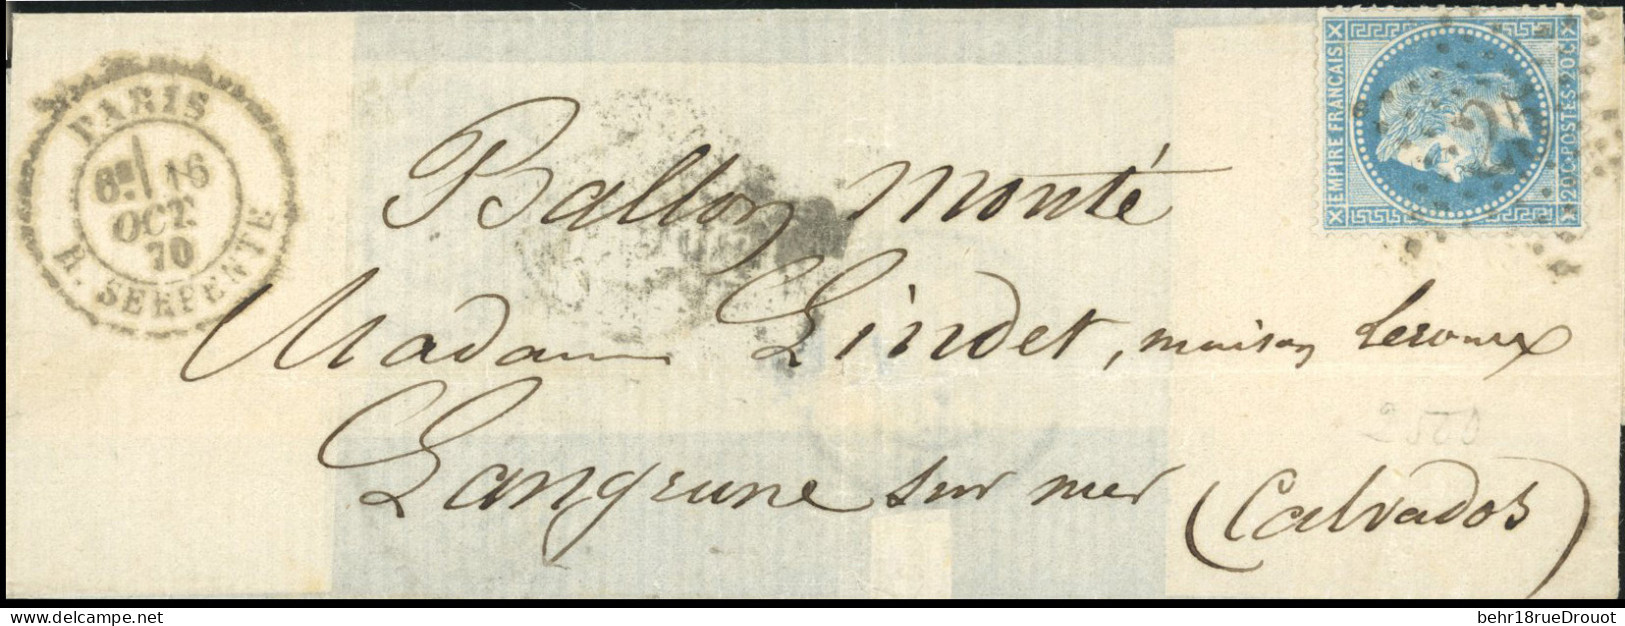 PARIS
6E 16
OCT.
70
R. SERPENTE
EMPIRE FRANÇAIS
20C POSTES 20C
25
Ballon monté
Madame Lindet, maison Leroux
Langrune sur mer (Calvados)
2500
behr18rueDrouot